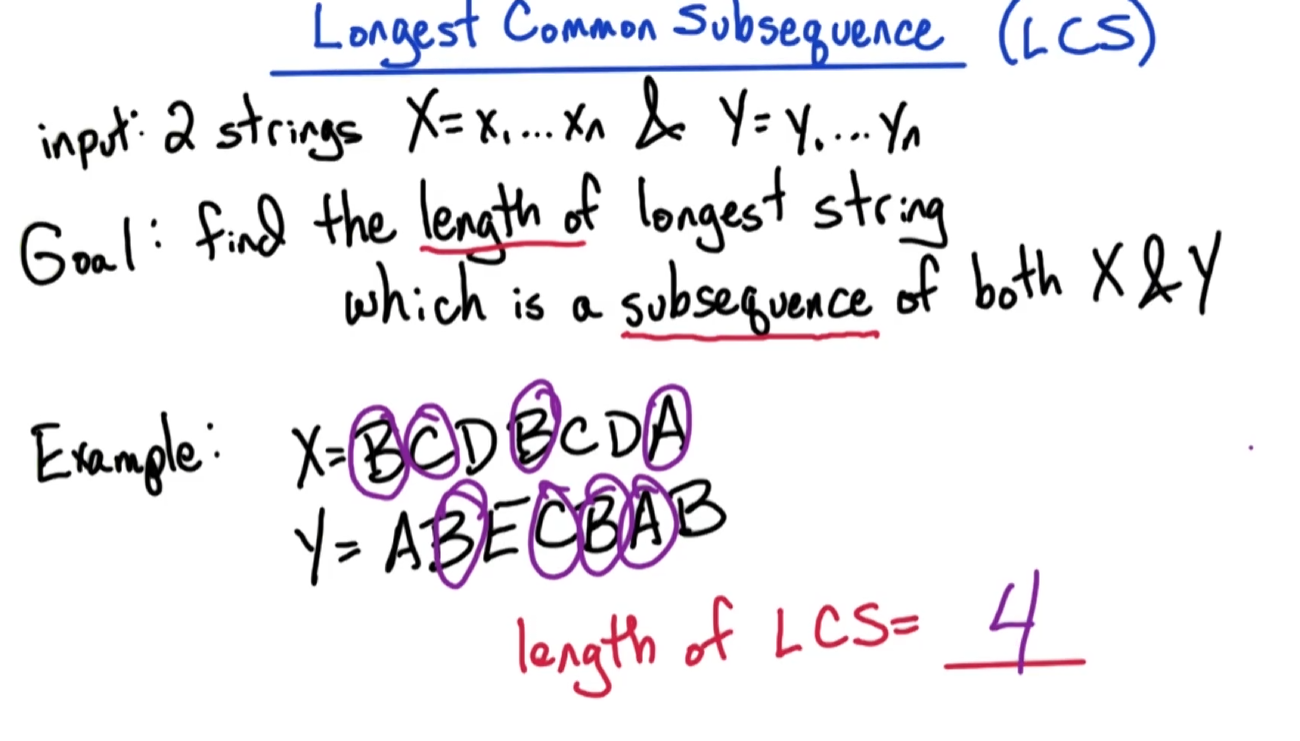 Longest Common Subsequence (LCS)
input: 2 strings X= x₁...xₙ & Y= y₁...yₙ
Goal: find the length of longest string
which is a subsequence of both X & Y
Example: X= BCDBCDA
Y= ABECBAB
length of LCS= 4